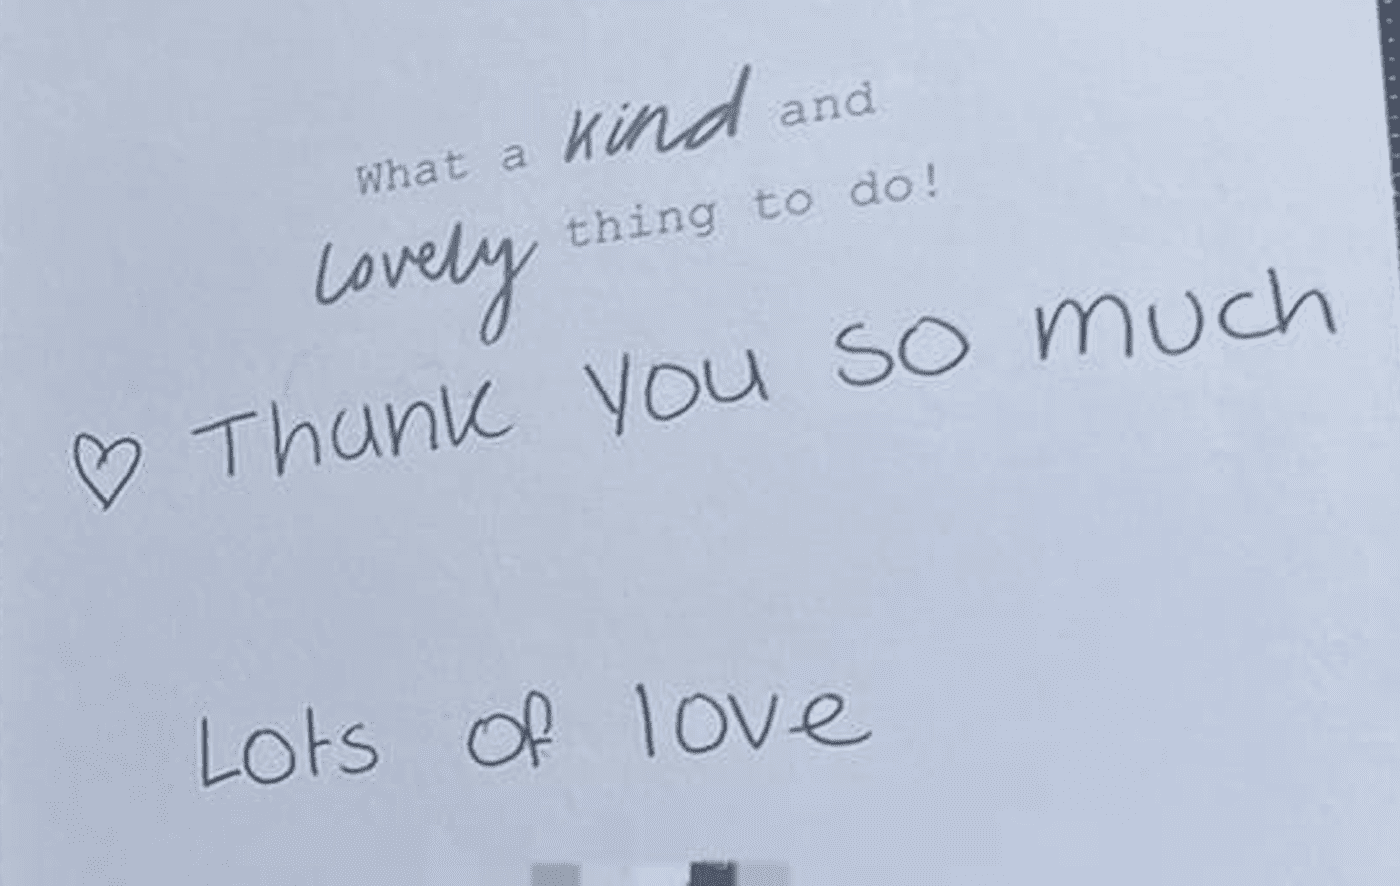 What a kind and
lovely thing to do!
♡ Thank you so much
Lots of love